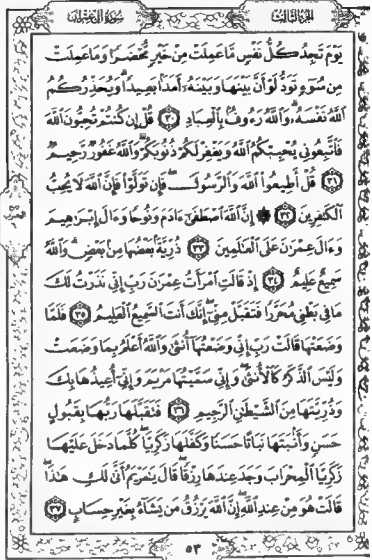 سورة آل عمران
الجزء الثالث
يَوْمَ تَجِدُ كُلُّ نَفْسٍ مَّا عَمِلَتْ مِنْ خَيْرٍ مُّحْضَرًا وَمَا عَمِلَتْ
مِن سُوٓءٍ تَوَدُّ لَوْ أَنَّ بَيْنَهَا وَبَيْنَهُۥٓ أَمَدًۢا بَعِيدًا ۗ وَيُحَذِّرُكُمُ
ٱللَّهُ نَفْسَهُۥ ۗ وَٱللَّهُ رَءُوفٌۢ بِٱلْعِبَادِ ٣٠ قُلْ إِن كُنتُمْ تُحِبُّونَ ٱللَّهَ
فَٱتَّبِعُونِى يُحْبِبْكُمُ ٱللَّهُ وَيَغْفِرْ لَكُمْ ذُنُوبَكُمْ ۗ وَٱللَّهُ غَفُورٌ رَّحِيمٌ
٣١ قُلْ أَطِيعُوا۟ ٱللَّهَ وَٱلرَّسُولَ ۖ فَإِن تَوَلَّوْا۟ فَإِنَّ ٱللَّهَ لَا يُحِبُّ
ٱلْكَٰفِرِينَ ٣٢ ۞ إِنَّ ٱللَّهَ ٱصْطَفَىٰٓ ءَادَمَ وَنُوحًا وَءَالَ إِبْرَٰهِيمَ
وَءَالَ عِمْرَٰنَ عَلَى ٱلْعَٰلَمِينَ ٣٣ ذُرِّيَّةًۢ بَعْضُهَا مِنۢ بَعْضٍ ۗ وَٱللَّهُ
سَمِيعٌ عَلِيمٌ ٣٤ إِذْ قَالَتِ ٱمْرَأَتُ عِمْرَٰنَ رَبِّ إِنِّى نَذَرْتُ لَكَ
مَا فِى بَطْنِى مُحَرَّرًا فَتَقَبَّلْ مِنِّىٓ ۖ إِنَّكَ أَنتَ ٱلسَّمِيعُ ٱلْعَلِيمُ ٣٥ فَلَمَّا
وَضَعَتْهَا قَالَتْ رَبِّ إِنِّى وَضَعْتُهَآ أُنثَىٰ وَٱللَّهُ أَعْلَمُ بِمَا وَضَعَتْ
وَلَيْسَ ٱلذَّكَرُ كَٱلْأُنثَىٰ ۖ وَإِنِّى سَمَّيْتُهَا مَرْيَمَ وَإِنِّىٓ أُعِيذُهَا بِكَ
وَذُرِّيَّتَهَا مِنَ ٱلشَّيْطَٰنِ ٱلرَّجِيمِ ٣٦ فَتَقَبَّلَهَا رَبُّهَا بِقَبُولٍ
حَسَنٍ وَأَنۢبَتَهَا نَبَاتًا حَسَنًا وَكَفَّلَهَا زَكَرِيَّا ۖ كُلَّمَا دَخَلَ عَلَيْهَا
زَكَرِيَّا ٱلْمِحْرَابَ وَجَدَ عِندَهَا رِزْقًا ۖ قَالَ يَٰمَرْيَمُ أَنَّىٰ لَكِ هَٰذَا ۖ
قَالَتْ هُوَ مِنْ عِندِ ٱللَّهِ ۖ إِنَّ ٱللَّهَ يَرْزُقُ مَن يَشَآءُ بِغَيْرِ حِسَابٍ ٣٧
٥٣